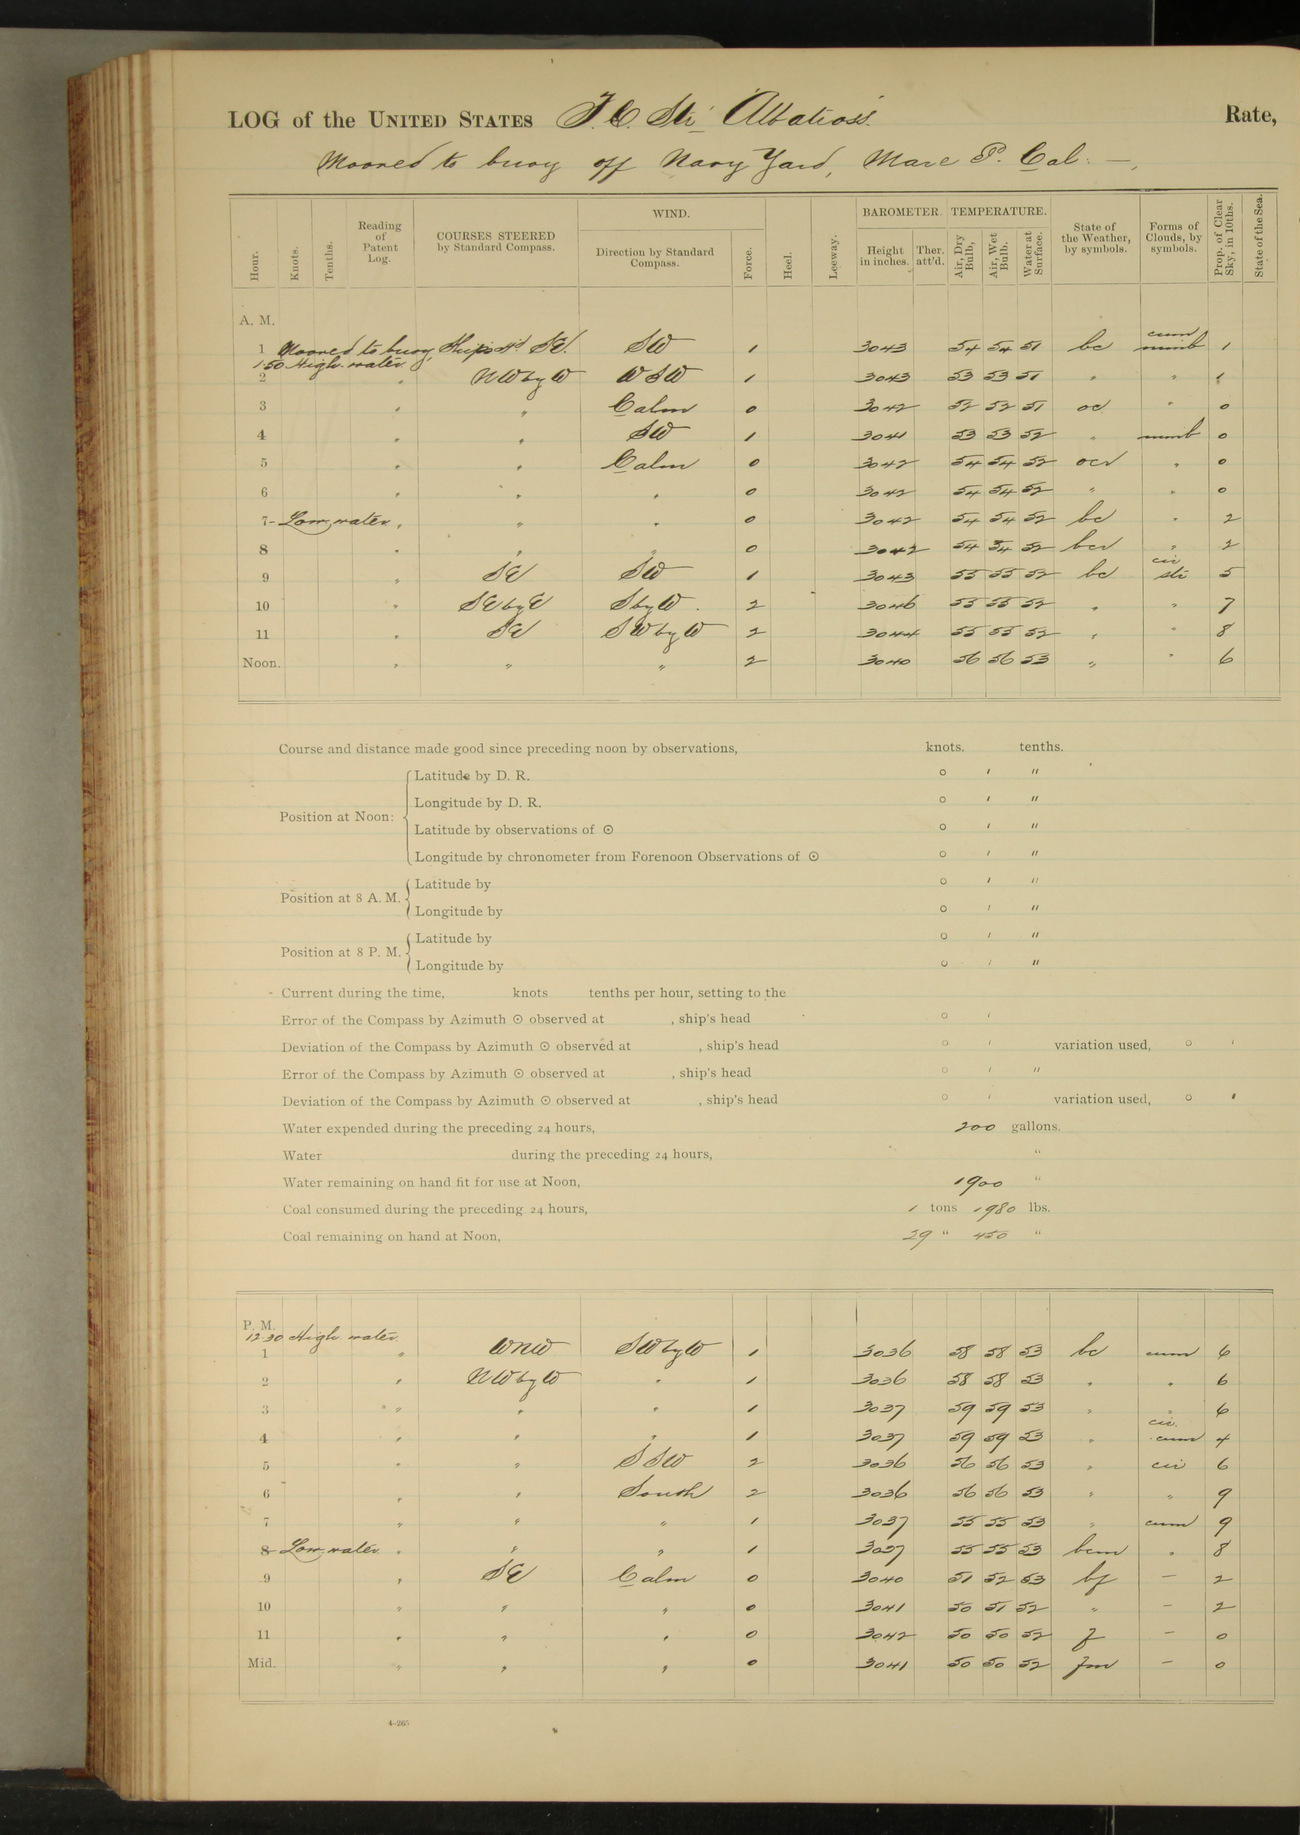 LOG of the UNITED STATES F. C. Str. Albatross. Rate,
Moored to buoy off Navy Yard, Mare Id. Cal. —,
WIND. BAROMETER. TEMPERATURE.
Hour. Knots. Tenths. Reading of Patent Log. COURSES STEERED by Standard Compass. Direction by Standard Compass. Force. Heel. Leeway. Height in inches. Ther. att'd. Air, Dry Bulb, Air, Wet Bulb. Water at Surface. State of the Weather, by symbols. Forms of Clouds, by symbols. Prop. of Clear Sky, in 10ths. State of the Sea.
A. M.
1 Moored to buoy, Ship's Hd SE. SW 1 3043 54 54 51 bc cum nimb 1
1 50 High water.
2 " NW by W WSW 1 3043 53 53 51 " " 1
3 " " Calm 0 3042 52 52 51 oc " 0
4 " " SW 1 3041 53 53 52 " nimb 0
5 " " Calm 0 3042 54 54 52 ocr " 0
6 " " " 0 3042 54 54 52 " " 0
7 - Low water. " " " 0 3042 54 54 52 bc " 2
8 " " " 0 3042 54 54 52 bcr " 2
9 " SE SW 1 3043 55 55 52 bc cir str 5
10 " SE by E S by W. 2 3046 55 55 52 " " 7
11 " SE SW by W 2 3044 55 55 52 " " 8
Noon. " " " 2 3040 56 56 53 " " 6
Course and distance made good since preceding noon by observations, knots. tenths.
Position at Noon: Latitude by D. R. ° ' "
Longitude by D. R. ° ' "
Latitude by observations of ☉ ° ' "
Longitude by chronometer from Forenoon Observations of ☉ ° ' "
Position at 8 A. M. Latitude by ° ' "
Longitude by ° ' "
Position at 8 P. M. Latitude by ° ' "
Longitude by ° ' "
Current during the time, knots tenths per hour, setting to the
Error of the Compass by Azimuth ☉ observed at , ship's head ° '
Deviation of the Compass by Azimuth ☉ observed at , ship's head ° ' variation used, ° '
Error of the Compass by Azimuth ☉ observed at , ship's head ° ' "
Deviation of the Compass by Azimuth ☉ observed at , ship's head ° ' variation used, ° '
Water expended during the preceding 24 hours, 200 gallons.
Water during the preceding 24 hours, "
Water remaining on hand fit for use at Noon, 1900 "
Coal consumed during the preceding 24 hours, 1 tons 1980 lbs.
Coal remaining on hand at Noon, 29 " 450 "
P. M.
12 30 High water.
1 " WNW SW by W 1 3036 58 58 53 bc cum 6
2 " NW by W " 1 3036 58 58 53 " " 6
3 " " " 1 3037 59 59 53 " " 6
4 " " " 1 3037 59 59 53 " cir. cum 4
5 " " SSW 2 3036 56 56 53 " cir 6
6 " " South 2 3036 56 56 53 " " 9
7 " " " 1 3037 55 55 53 " cum 9
8 - Low water " " " 1 3037 55 55 53 bcm " 8
9 " SE Calm 0 3040 51 52 53 bf — 2
10 " " " 0 3041 50 51 52 " — 2
11 " " " 0 3042 50 50 52 f — 0
Mid. " " " 0 3041 50 50 52 fm — 0
4-265